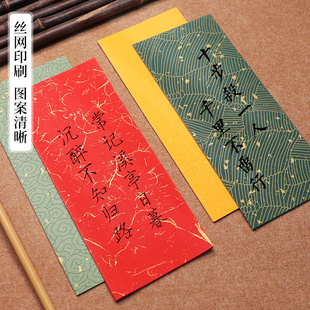 丝网印刷 图案清晰
常记溪亭日暮
沉醉不知归路
十步杀一人
千里不留行